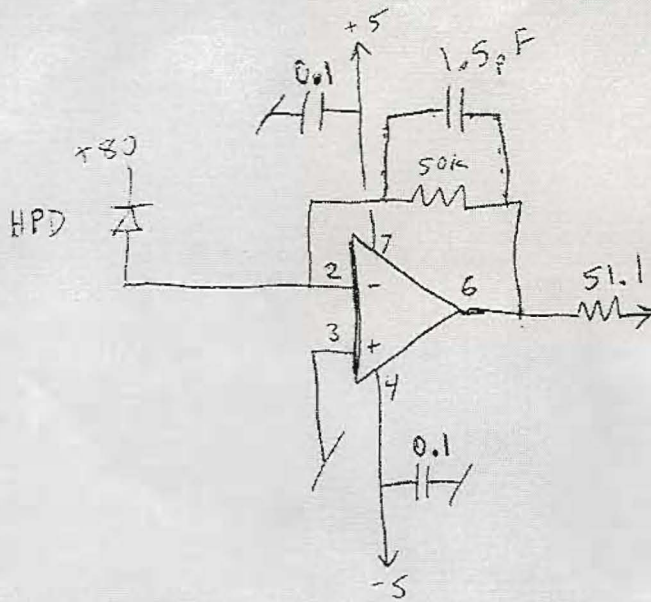 +5
0.1
1.5pF
+80
50k
HPD
7
2
-
6
51.1
3
+
4
0.1
-5